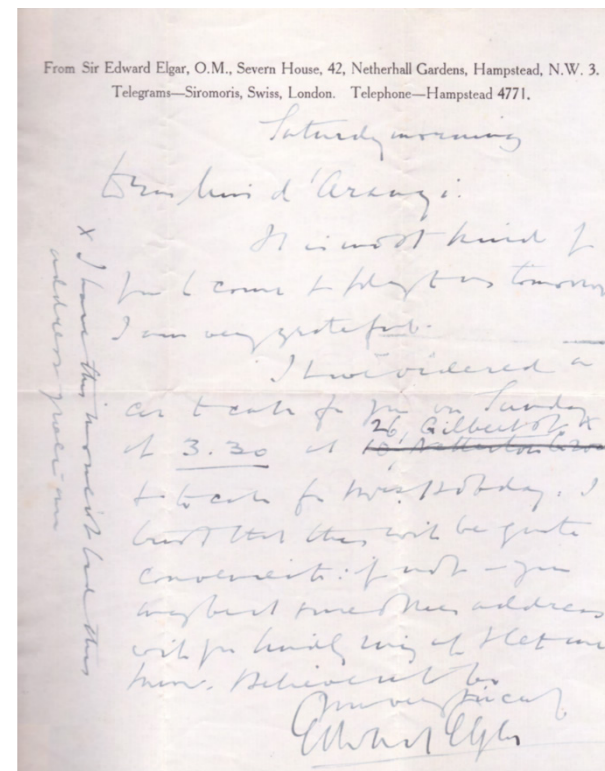 From Sir Edward Elgar, O.M., Severn House, 42, Netherhall Gardens, Hampstead, N.W. 3.
Telegrams—Siromoris, Swiss, London. Telephone—Hampstead 4771.
Saturday morning
Dear Miss d'Aranyi.
It is most kind of
you to come & play to us tomorrow
I am very grateful.
I have ordered a
car to call for you on Sunday
26, Gilbert St. x
at 3.30 at 10, Netherton Grove
& to call for Mrs. Hobday. I
trust that this will be quite
convenient: if not – you
may be at some other address
will you kindly ring up & let me
know. Believe me to be
Yours very sincerely
Edward Elgar
x I have this moment had this
address given me